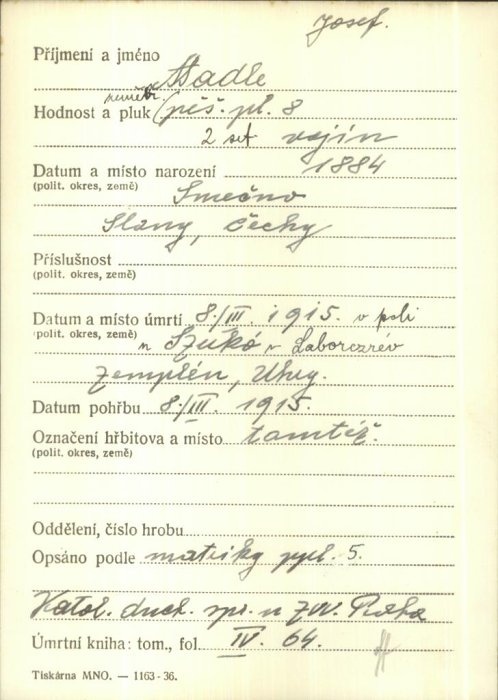 Josef.
Příjmení a jméno Stadle
Hodnost a pluk (pěš. pl. 8
2 set vojín
Datum a místo narození 1884
(polit. okres, země) Smečno
Slaný, Čechy
Příslušnost
(polit. okres, země)
Datum a místo úmrtí 8./III. 1915. v poli
(polit. okres, země) n Szukó v Laborczrév
Zemplén, Uhry.
Datum pohřbu 8./III. 1915.
Označení hřbitova a místo tamtéž.
(polit. okres, země)
Oddělení, číslo hrobu
Opsáno podle matriky ppl. 5.
Katol. duch. spr. u ZVV. Praha
Úmrtní kniha: tom., fol. IV. 64.
Tiskárna MNO. — 1163-36.